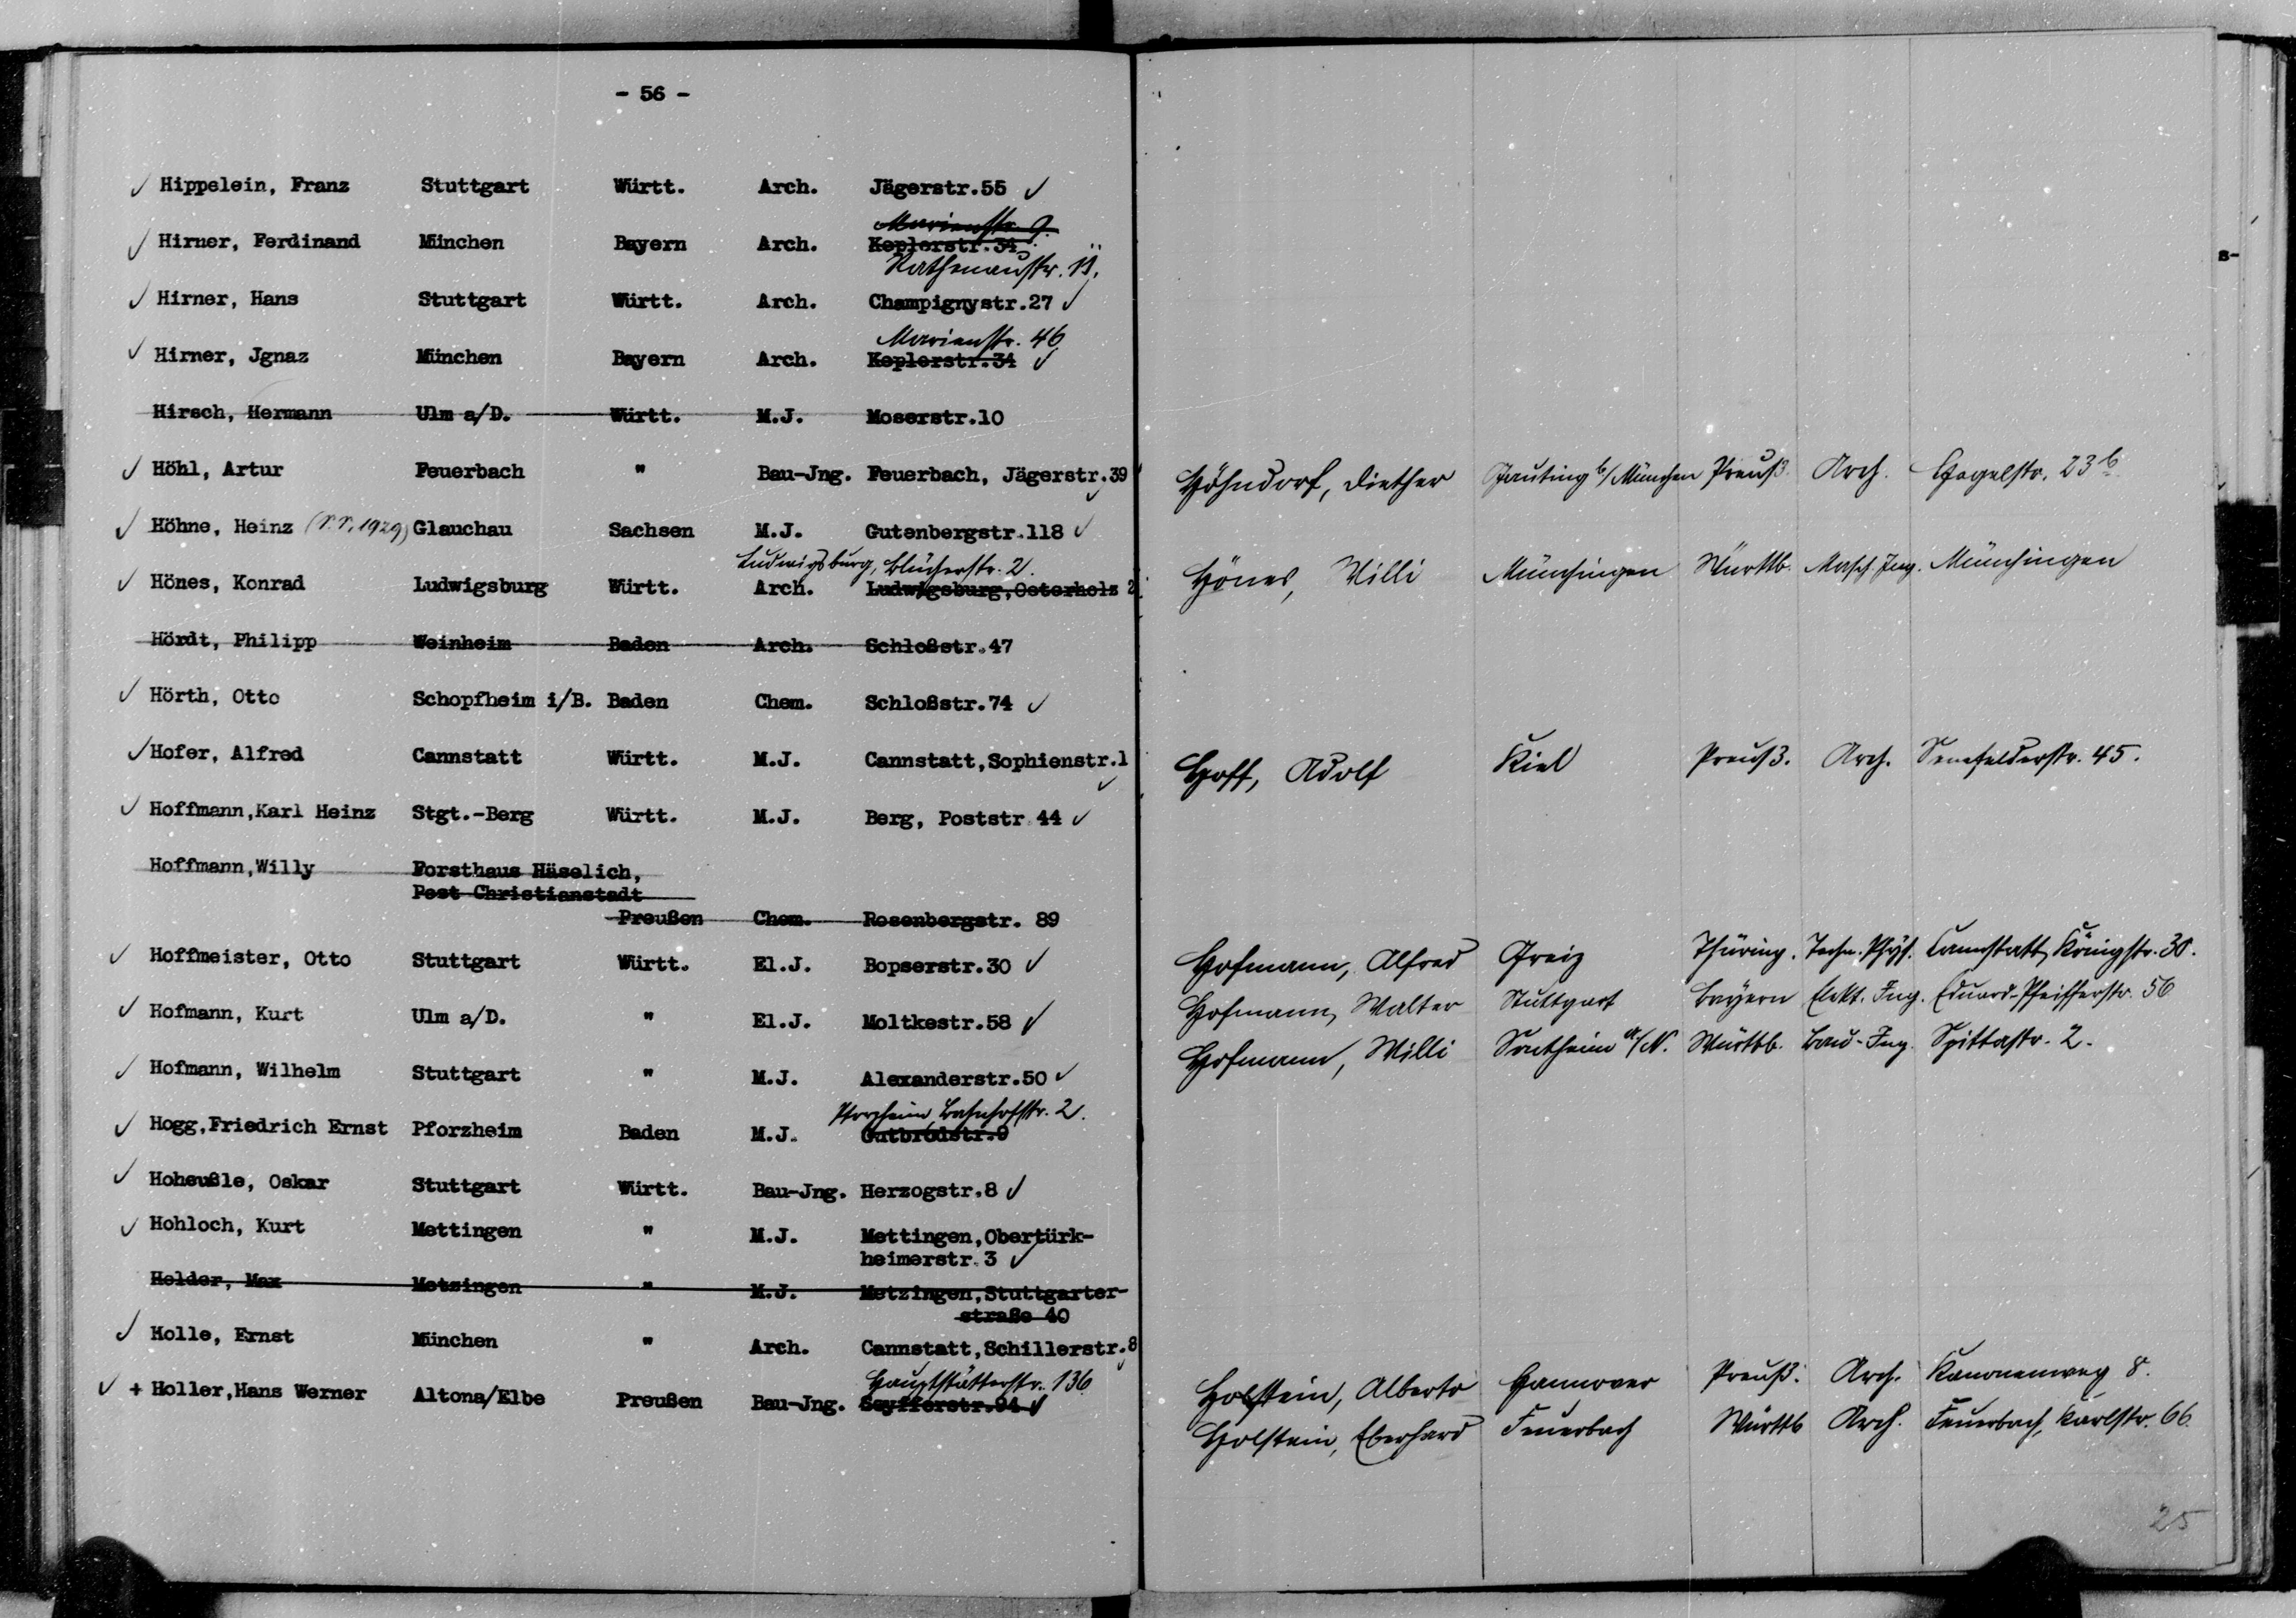 - 56 -
✓ Hippelein, Franz Stuttgart Württ. Arch. Jägerstr.55 ✓
Marienstr. 9.
✓ Hirner, Ferdinand München Bayern Arch. Keplerstr.34
Rathenaustr. 11.
✓ Hirner, Hans Stuttgart Württ. Arch. Champignystr.27 ✓
Marienstr. 46
✓ Hirner, Jgnaz München Bayern Arch. Keplerstr.34 ✓
Hirsch, Hermann Ulm a/D. Württ. M.J. Moserstr.10
✓ Höhl, Artur Feuerbach " Bau-Jng. Feuerbach, Jägerstr.39 ✓
✓ Höhne, Heinz Glauchau Sachsen M.J. Gutenbergstr.118 ✓
Ludwigsburg, Blücherstr. 2.
✓ Hönes, Konrad Ludwigsburg Württ. Arch. Ludwigsburg,Osterholz 2
Hördt, Philipp Weinheim Baden Arch. Schloßstr.47
✓ Hörth, Otto Schopfheim i/B. Baden Chem. Schloßstr.74 ✓
✓ Hofer, Alfred Cannstatt Württ. M.J. Cannstatt,Sophienstr.1 ✓
✓ Hoffmann,Karl Heinz Stgt.-Berg Württ. M.J. Berg, Poststr.44 ✓
Hoffmann,Willy Forsthaus Häselich,
Post Christianstadt
Preußen Chem. Rosenbergstr. 89
✓ Hoffmeister, Otto Stuttgart Württ. El.J. Bopserstr.30 ✓
✓ Hofmann, Kurt Ulm a/D. " El.J. Moltkestr.58 ✓
✓ Hofmann, Wilhelm Stuttgart " M.J. Alexanderstr.50 ✓
Pforzheim, Bahnhofstr. 2.
✓ Hogg,Friedrich Ernst Pforzheim Baden M.J. Gutbrodstr.9
✓ Hoheußle, Oskar Stuttgart Württ. Bau-Jng. Herzogstr.8 ✓
✓ Hohloch, Kurt Mettingen " M.J. Mettingen,Obertürk-
heimerstr.3 ✓
Holder, Max Metzingen " M.J. Metzingen,Stuttgarter-
straße 40
✓ Holle, Ernst München " Arch. Cannstatt,Schillerstr.8 ✓
Hauptstätterstr. 136
✓ + Holler,Hans Werner Altona/Elbe Preußen Bau-Jng. Seyfferstr.94 ✓
Höhndorf, Diether Gauting b/München Preuß. Arch. Hegelstr. 23b
Hönes, Willi Münchingen Württb. Masch. Ing. Münchingen
Hoff, Adolf Kiel Preuß. Arch. Senefelderstr. 45.
Hofmann, Alfred Greiz Thüring. Techn. Phys. Cannstatt, Königstr. 30.
Hofmann, Walter Stuttgart Bayern Elekt. Ing. Eduard-Pfeifferstr. 56
Hofmann, Willi Sontheim a/N. Württb. Bau-Ing. Spittastr. 2.
Holstein, Alberto Hannover Preuß. Arch. Kanonenweg 8.
Holstein, Eberhard Feuerbach Württb Arch. Feuerbach, Karlstr. 66.
25